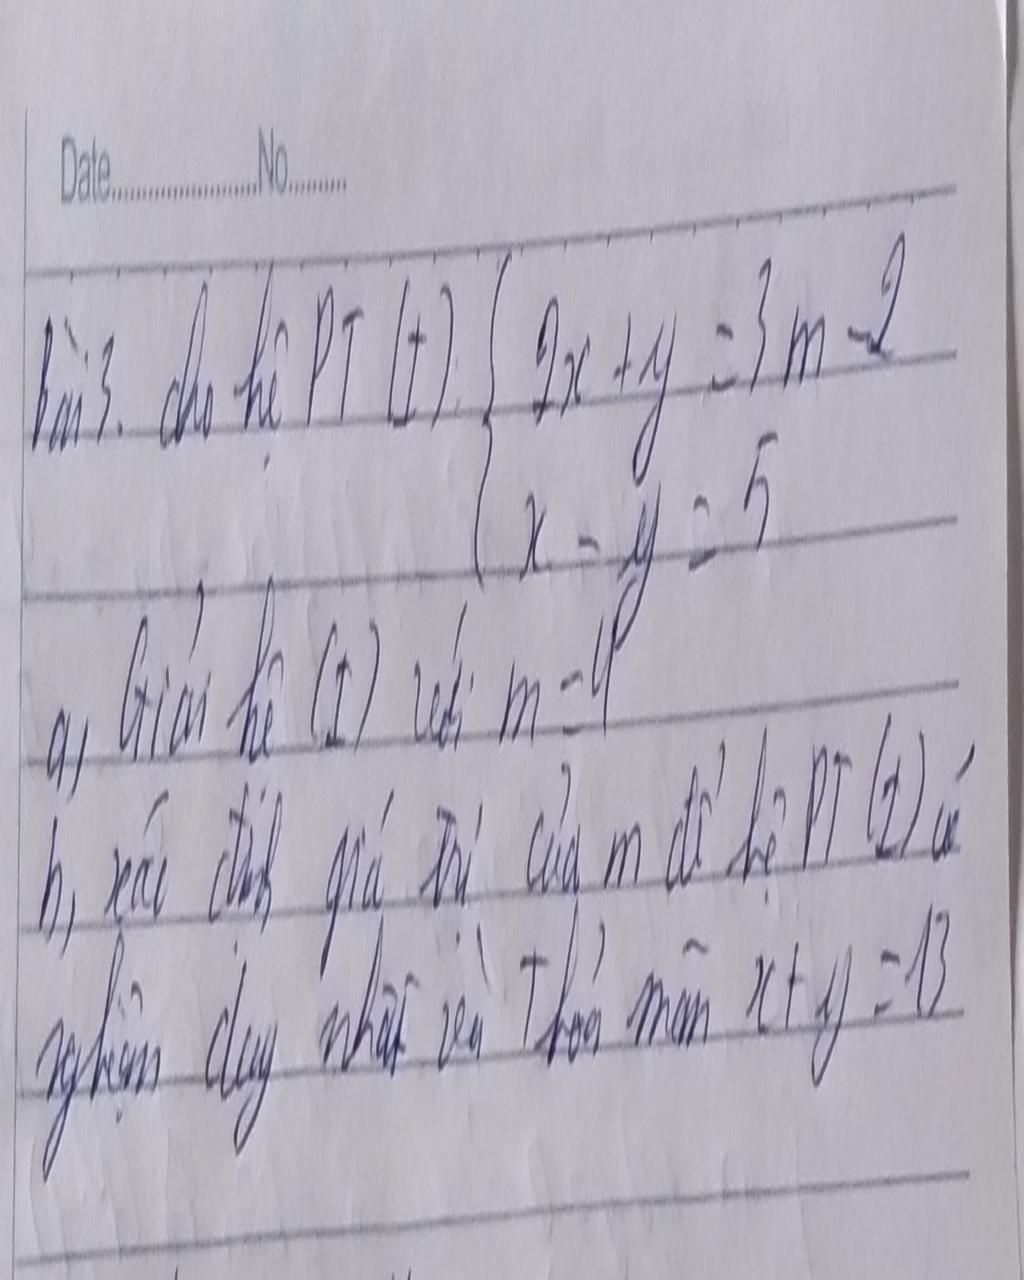 Date......................No.........
bài 3. cho hệ PT (I) { 2x + y = 3m - 2
x - y = 5
a, Giải hệ (I) với m = 4
b, xác định giá trị của m để hệ PT (I) có
nghiệm duy nhất và thỏa mãn x + y = 13